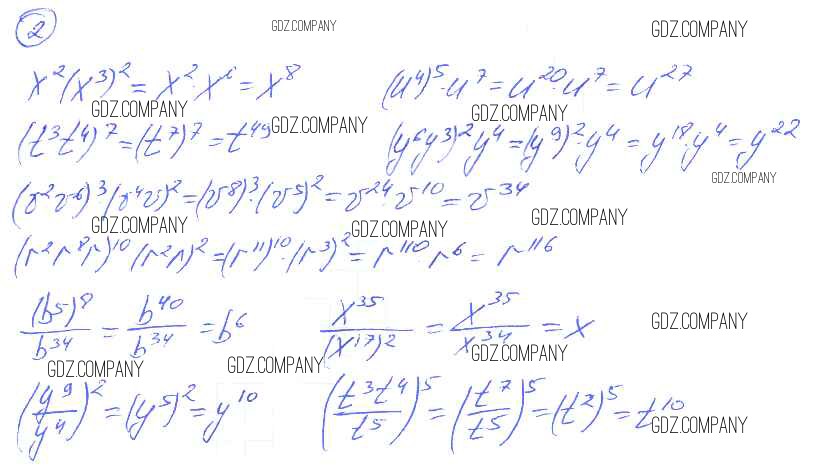 2 GDZ.COMPANY GDZ.COMPANY
x²(x³)² = x²·x⁶ = x⁸ (u⁴)⁵·u⁷ = u²⁰·u⁷ = u²⁷
GDZ.COMPANY GDZ.COMPANY
(t³t⁴)⁷ = (t⁷)⁷ = t⁴⁹ GDZ.COMPANY (y⁶y³)²y⁴ = (y⁹)²·y⁴ = y¹⁸·y⁴ = y²²
GDZ.COMPANY
(v²v⁶)³(v⁴v)² = (v⁸)³·(v⁵)² = v²⁴·v¹⁰ = v³⁴
GDZ.COMPANY GDZ.COMPANY GDZ.COMPANY
(r²r⁸r)¹⁰(r²r)² = (r¹¹)¹⁰·(r³)² = r¹¹⁰r⁶ = r¹¹⁶
(b⁵)⁸/b³⁴ = b⁴⁰/b³⁴ = b⁶ x³⁵/(x¹⁷)² = x³⁵/x³⁴ = x GDZ.COMPANY
GDZ.COMPANY GDZ.COMPANY GDZ.COMPANY
(y⁹/y⁴)² = (y⁵)² = y¹⁰ (t³t⁴/t⁵)⁵ = (t⁷/t⁵)⁵ = (t²)⁵ = t¹⁰
GDZ.COMPANY